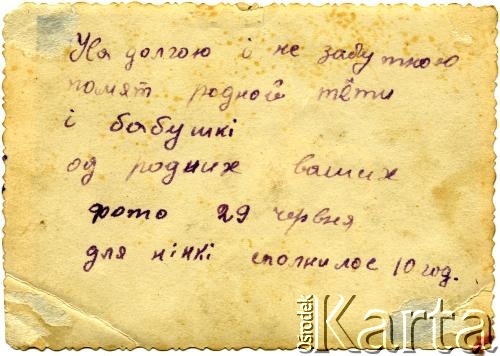 На долгою і не забуткою
помят родной тёти
і бабушкі
од родних ваших
фото 29 червня
для нінкі сполнилос 10 год.
Ośrodek
Karta